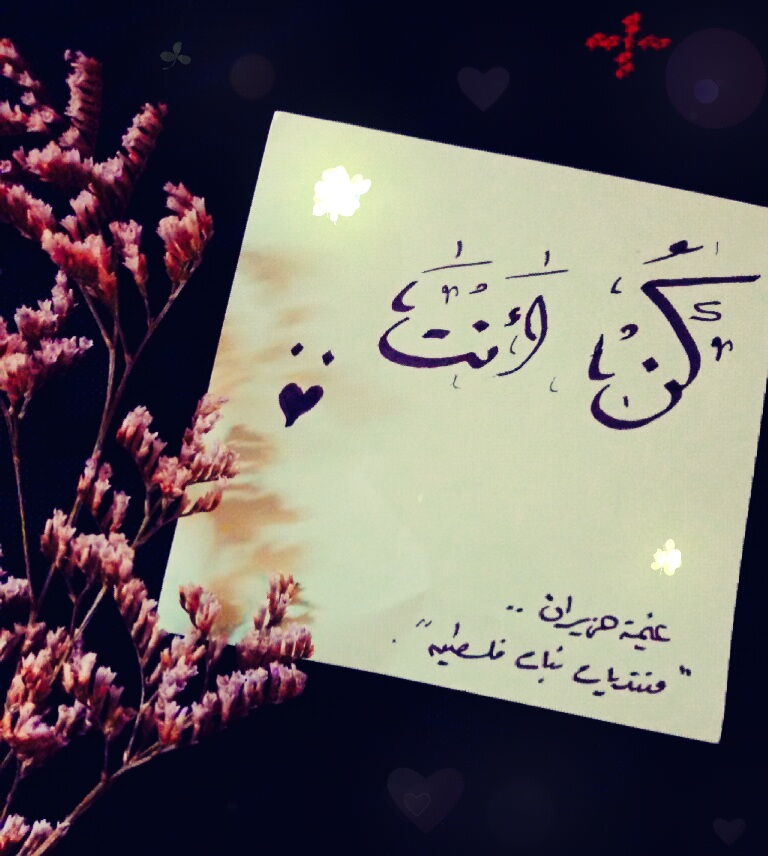 كُن أنتَ ..
غيمة حزيران ..
"منتديات شباب فلسطين"